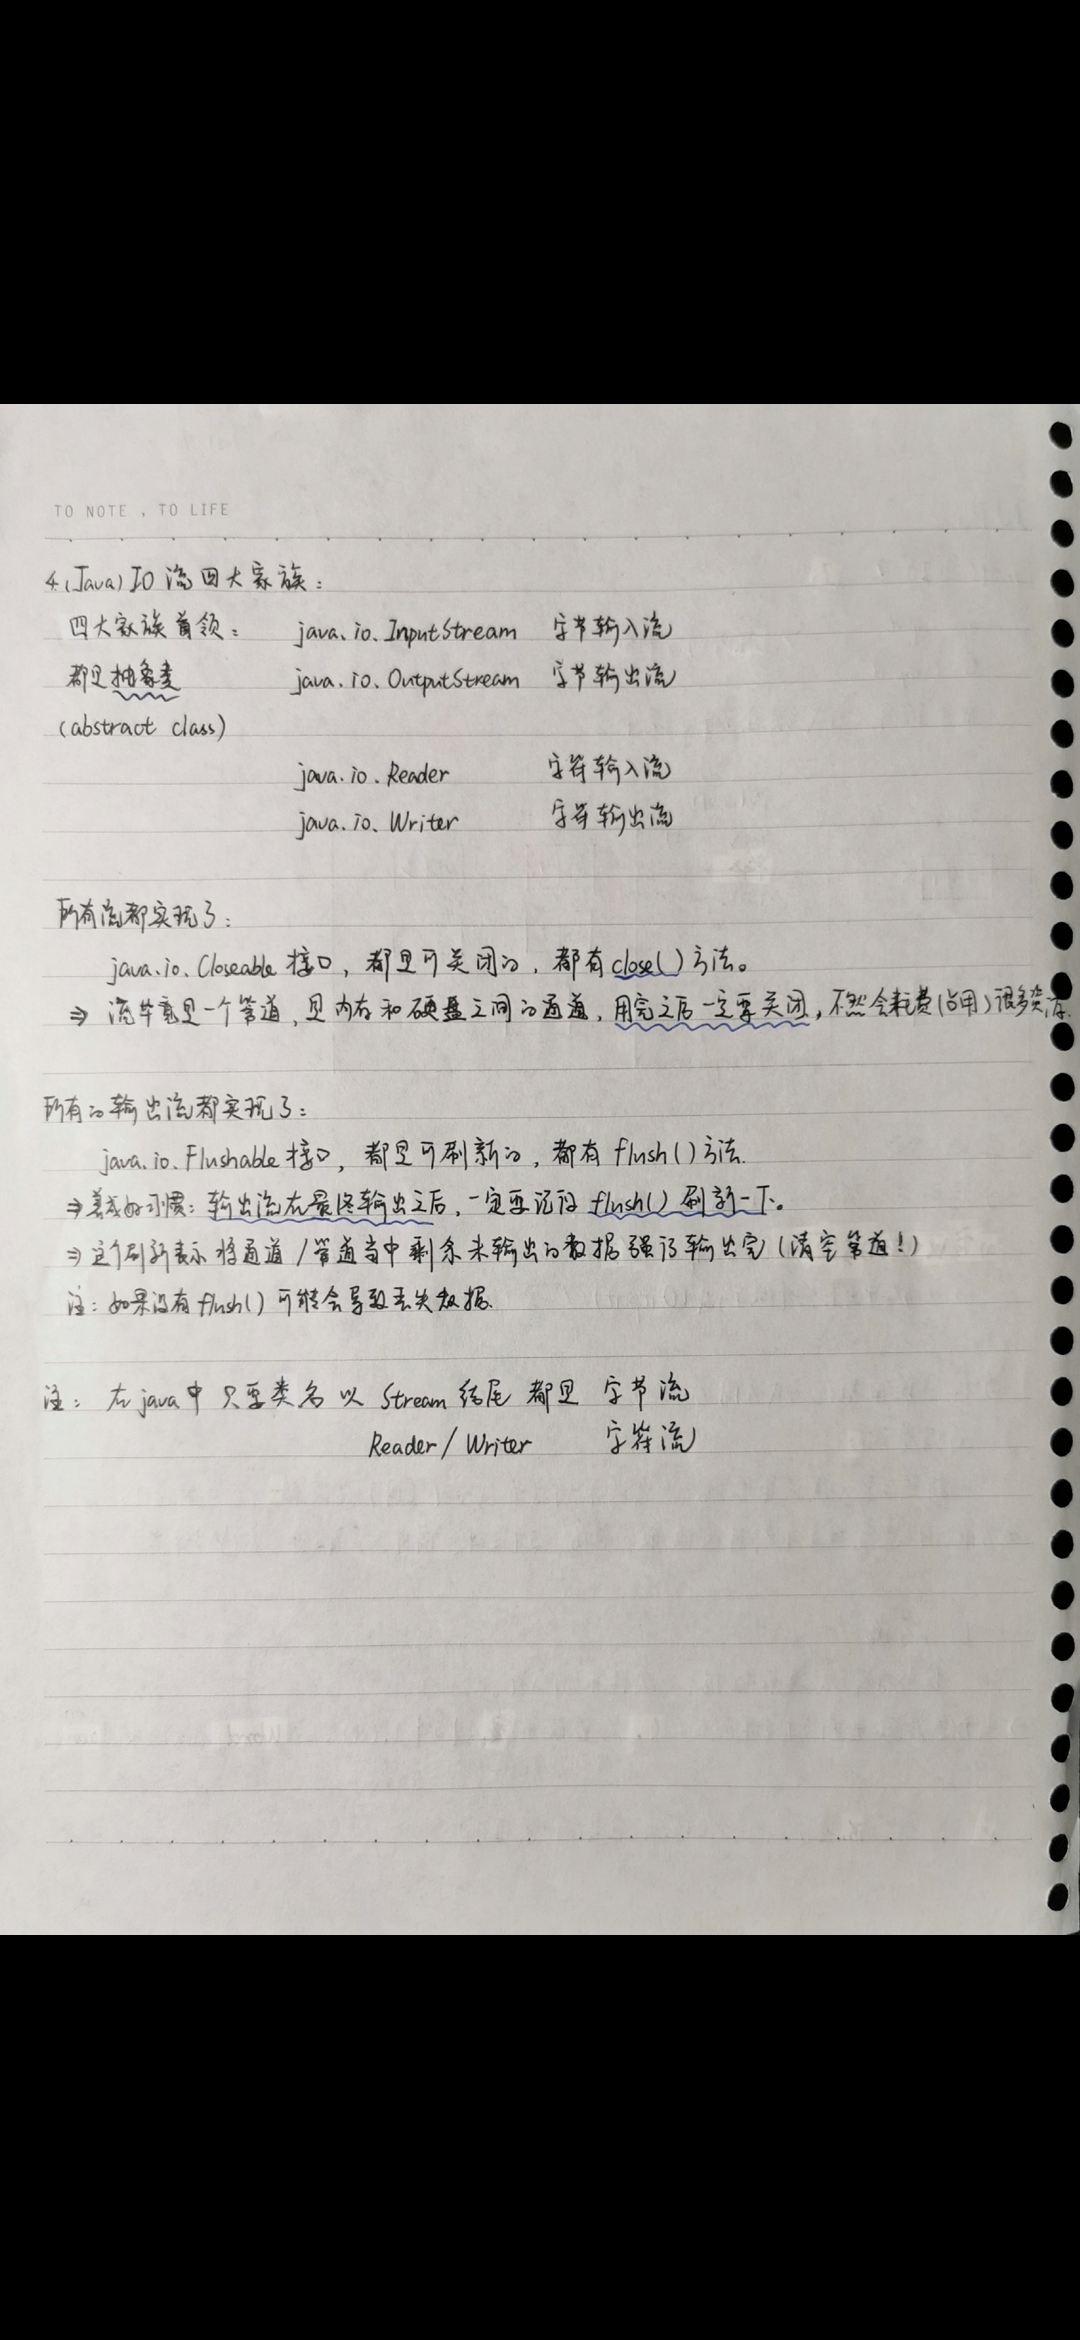 TO NOTE , TO LIFE
4.(Java) IO 流四大家族：
四大家族首领： java.io.InputStream 字节输入流
都是抽象类 java.io.OutputStream 字节输出流
(abstract class)
java.io.Reader 字符输入流
java.io.Writer 字符输出流
所有流都实现了：
java.io.Closeable 接口，都是可关闭的，都有 close() 方法。
⇒ 流毕竟是一个管道，是内存和硬盘之间的通道，用完之后一定要关闭，不然会耗费(占用)很多资源.
所有的输出流都实现了：
java.io.Flushable 接口，都是可刷新的，都有 flush() 方法.
⇒ 养成好习惯：输出流在最终输出之后，一定要记得 flush() 刷新一下。
⇒ 这个刷新表示将通道/管道当中剩余未输出的数据强行输出完 (清空管道！)
注：如果没有 flush() 可能会导致丢失数据.
注：在 java 中只要类名以 Stream 结尾 都是 字节流
Reader / Writer 字符流